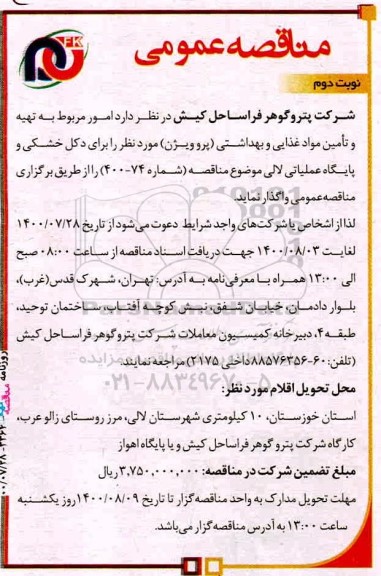 FK
مناقصه عمومی
نوبت دوم
شرکت پترو گوهر فراساحل کیش در نظر دارد امور مربوط به تهیه
و تأمین مواد غذایی و بهداشتی (پرو ویژن) مورد نظر را برای دکل خشکی و
پایگاه عملیاتی لالی موضوع مناقصه (شماره ۷۴-۴۰۰) را از طریق برگزاری
مناقصه عمومی واگذار نماید.
لذا از اشخاص یا شرکت‌های واجد شرایط دعوت می‌شود از تاریخ ۱۴۰۰/۰۷/۲۸
لغایت ۱۴۰۰/۰۸/۰۳ جهت دریافت اسناد مناقصه از ساعت ۰۸:۰۰ صبح
الی ۱۳:۰۰ همراه با معرفی‌نامه به آدرس: تهران، شهرک قدس (غرب)،
بلوار دادمان، خیابان شفق، نبش کوچه آفتاب، ساختمان توحید،
طبقه ۴، دبیرخانه کمیسیون معاملات شرکت پترو گوهر فراساحل کیش
(تلفن: ۶۰-۸۸۵۷۶۳۵۶ داخلی ۲۱۷۵) مراجعه نمایند.
۰۲۱-۸۸۳۴۹۶۷۰-۵
محل تحویل اقلام مورد نظر:
استان خوزستان، ۱۰ کیلومتری شهرستان لالی، مرز روستای زالو عرب،
کارگاه شرکت پترو گوهر فراساحل کیش و یا پایگاه اهواز
مبلغ تضمین شرکت در مناقصه: ۳,۷۵۰,۰۰۰,۰۰۰ ریال
مهلت تحویل مدارک به واحد مناقصه‌گزار تا تاریخ ۱۴۰۰/۰۸/۰۹ روز یکشنبه
ساعت ۱۳:۰۰ به آدرس مناقصه‌گزار می‌باشد.
روزنامه مناقصه